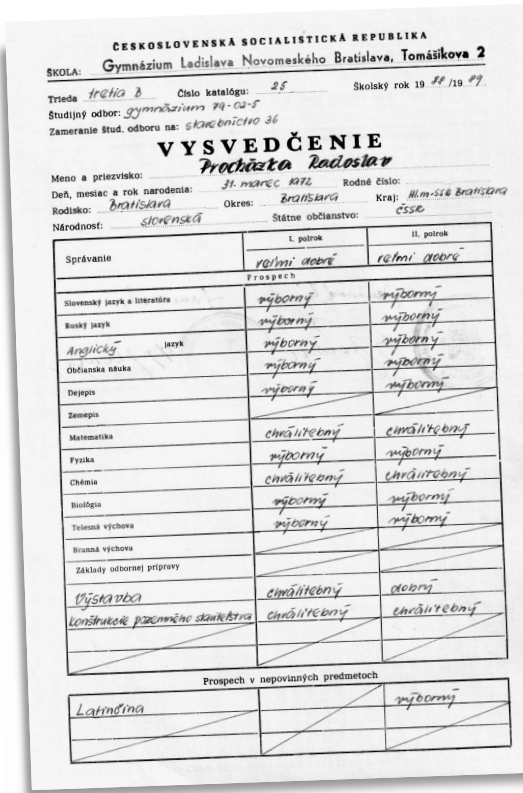 ČESKOSLOVENSKÁ SOCIALISTICKÁ REPUBLIKA
ŠKOLA: Gymnázium Ladislava Novomeského Bratislava, Tomášikova 2
Trieda tretia B Číslo katalógu: 25 Školský rok 19 88 /19 89
Študijný odbor: gymnázium 79-02-5
Zameranie štud. odboru na: stavebníctvo 36
VYSVEDČENIE
Meno a priezvisko: Procházka Radoslav
Deň, mesiac a rok narodenia: 31. marec 1972 Rodné číslo:
Rodisko: Bratislava Okres: Bratislava Kraj: Hl.m. SSR Bratislava
Národnosť: slovenská Štátne občianstvo: ČSSR
I. polrok II. polrok
Správanie veľmi dobré veľmi dobré
Prospech
Slovenský jazyk a literatúra výborný výborný
Ruský jazyk výborný výborný
Anglický jazyk výborný výborný
Občianska náuka výborný výborný
Dejepis výborný výborný
Zemepis
Matematika chválitebný chválitebný
Fyzika výborný výborný
Chémia chválitebný chválitebný
Biológia výborný výborný
Telesná výchova výborný výborný
Branná výchova
Základy odbornej prípravy
Výstavba chválitebný dobrý
konštrukcie pozemného staviteľstva chválitebný chválitebný
Prospech v nepovinných predmetoch
Latinčina výborný